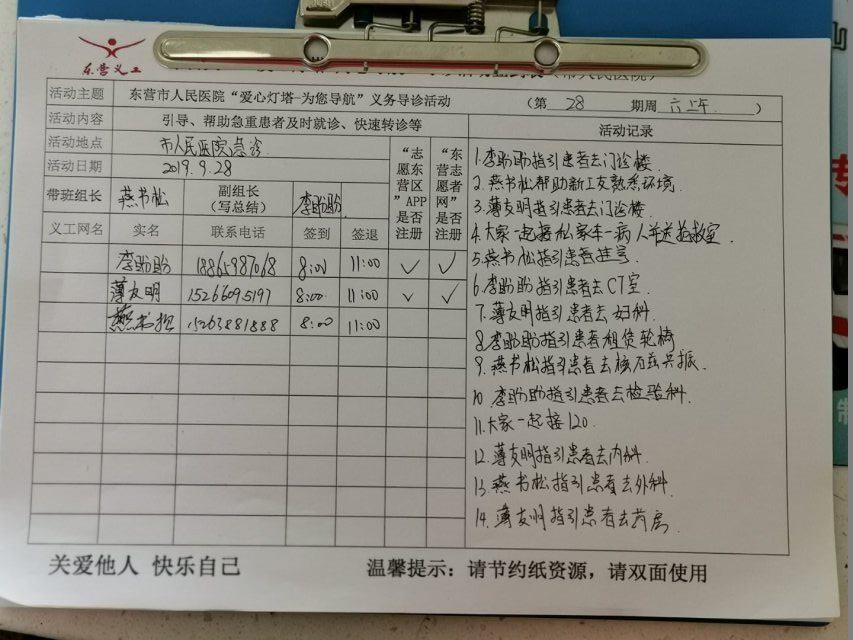 东营义工
活动主题 东营市人民医院“爱心灯塔-为您导航”义务导诊活动 （第 28 期周 六上午 ）
活动内容 引导、帮助急重患者及时就诊、快速转诊等
活动地点 市人民医院急诊
活动日期 2019.9.28
带班组长 燕书松 副组长（写总结） 李盼盼
“志愿东营区”APP是否注册 “东营志愿者网”是否注册
义工网名 实名 联系电话 签到 签退
李盼盼 18865987068 8:00 11:00 ✓ ✓
薄友明 15266095197 8:00 11:00 ✓ ✓
燕书松 15263881888 8:00 11:00
活动记录
1.李盼盼指引患者去门诊楼
2.燕书松帮助新工友熟悉环境.
3.薄友明指引患者去门诊楼
4.大家一起接私家车一病人并送抢救室.
5.燕书松指引患者挂号
6.李盼盼指引患者去CT室.
7.薄友明指引患者去妇科.
8.李盼盼指引患者租赁轮椅
9.燕书松指引患者去核磁共振.
10 李盼盼指引患者去检验科.
11.大家一起接120.
12.薄友明指引患者去内科.
13.燕书松指引患者去外科.
14.薄友明指引患者去药房.
关爱他人 快乐自己
温馨提示：请节约纸资源，请双面使用